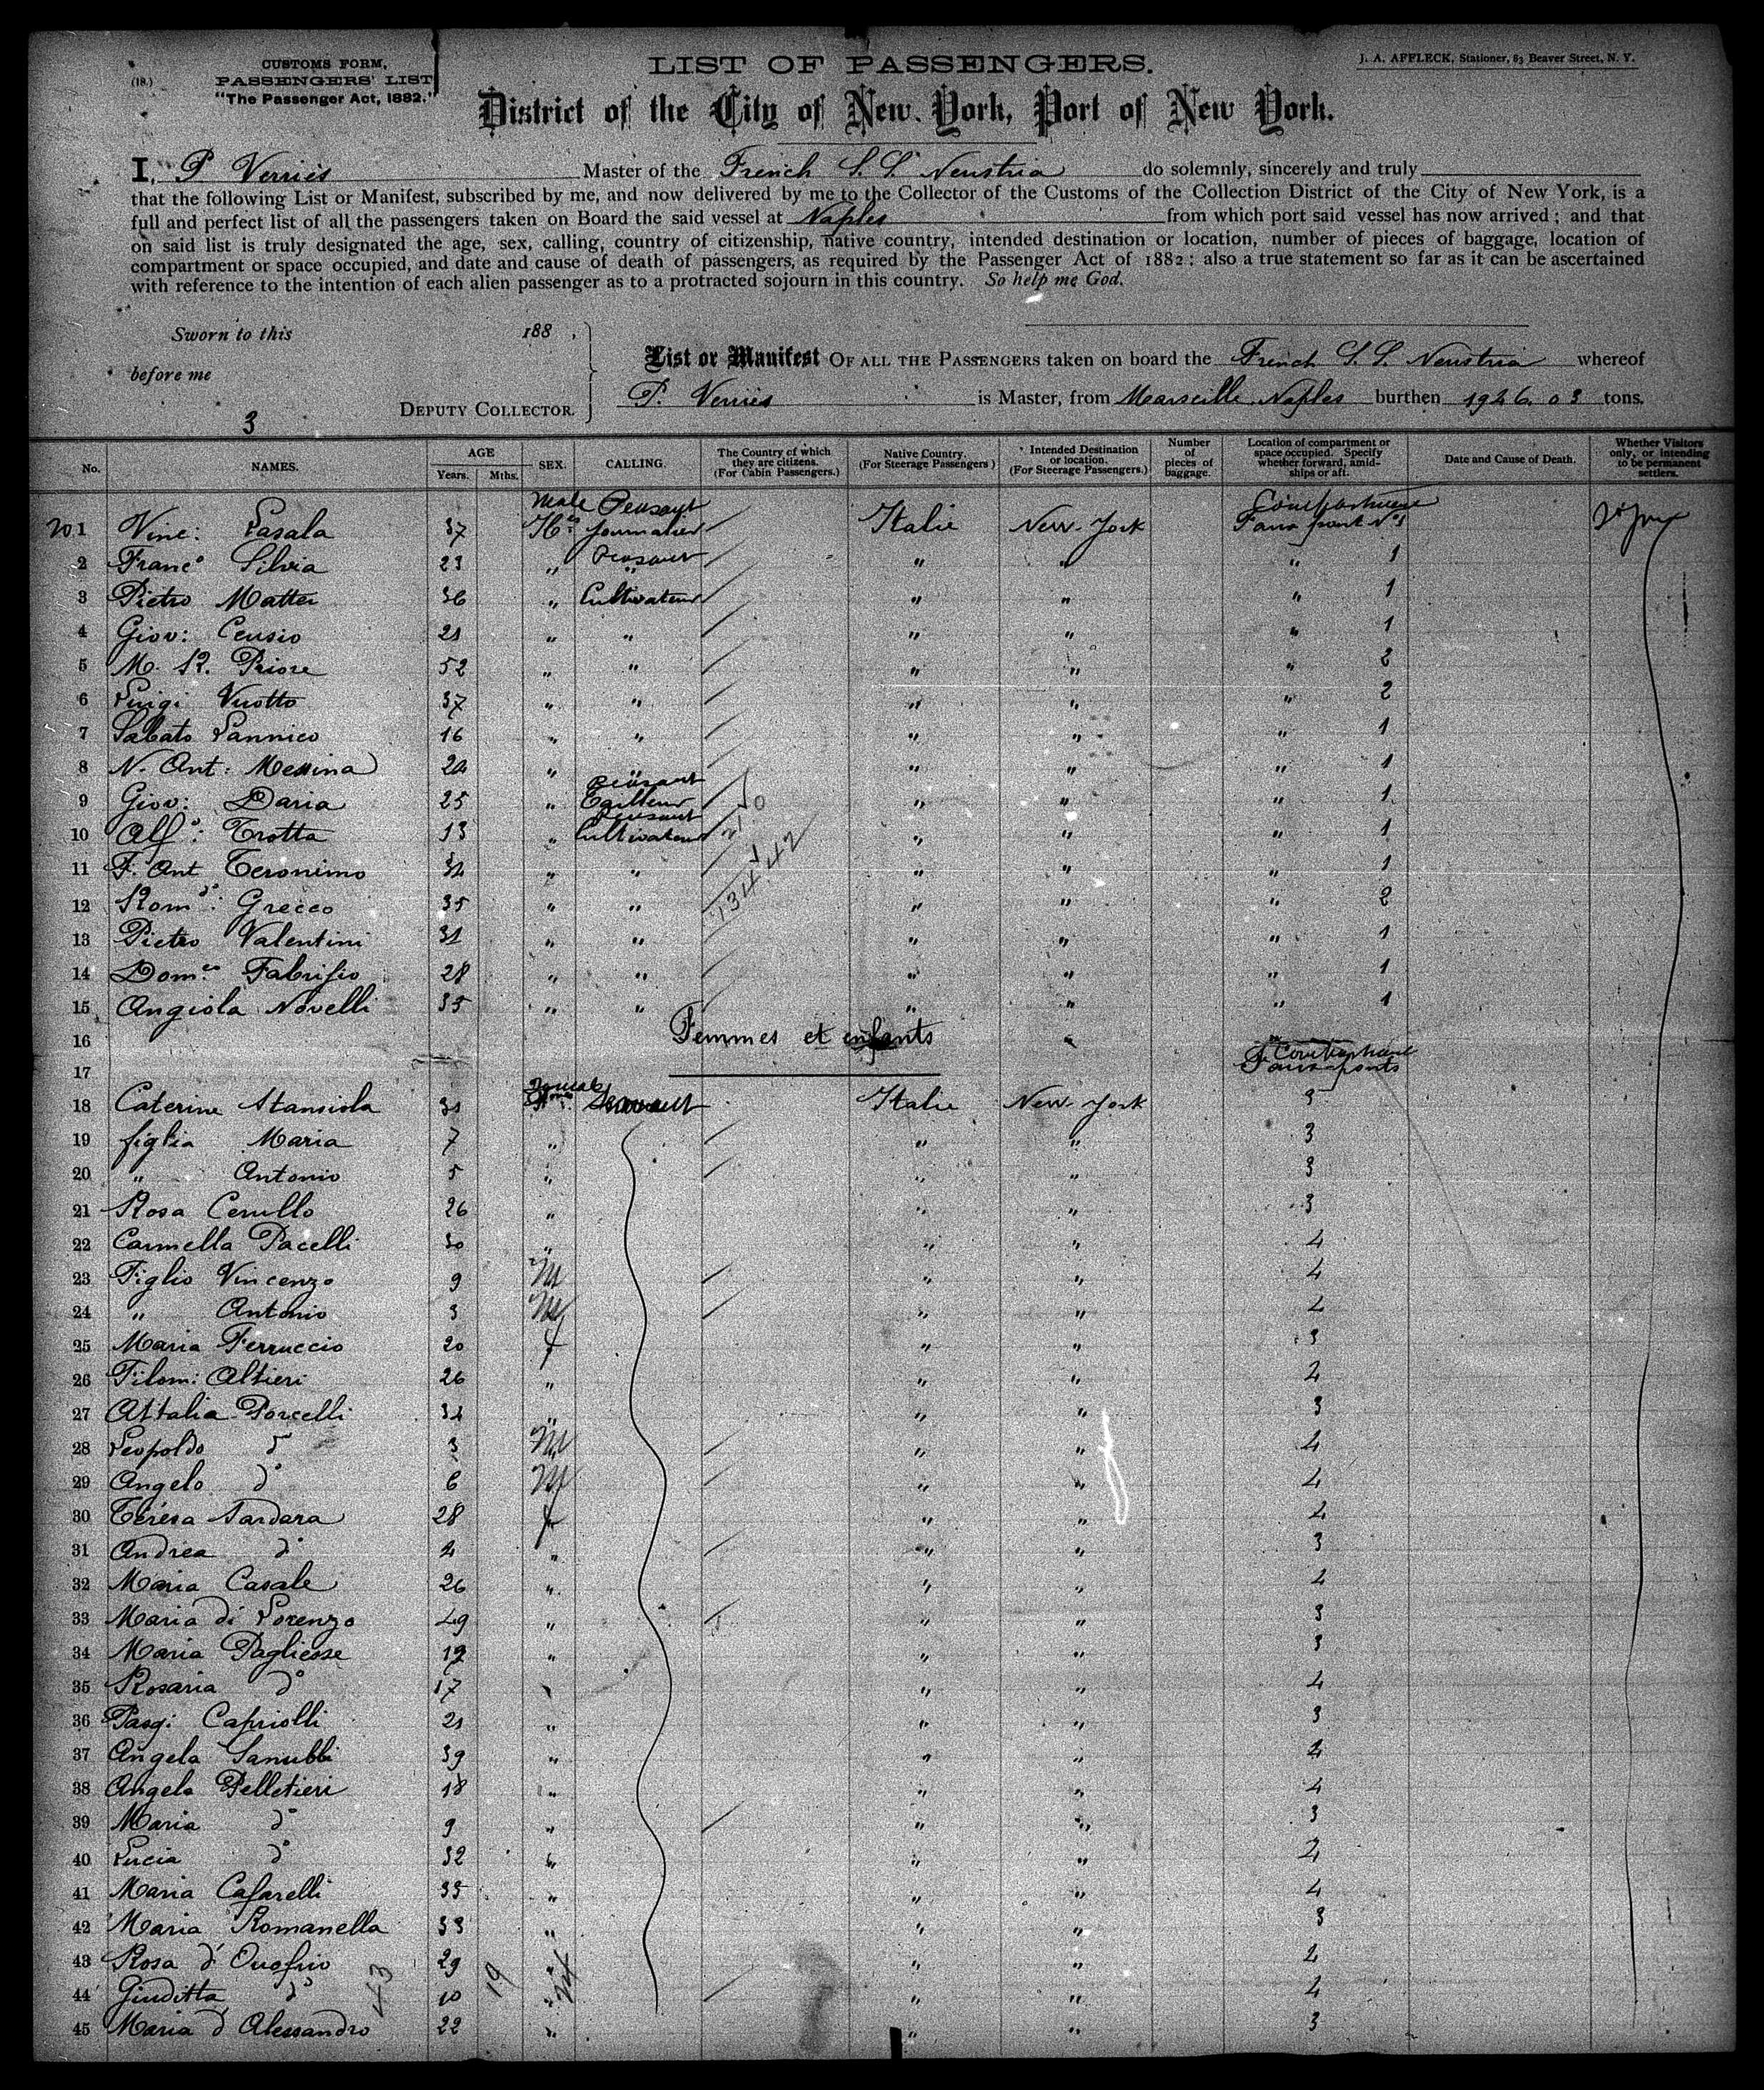 (18.)
CUSTOMS FORM,
PASSENGERS' LIST
"The Passenger Act, 1882."
LIST OF PASSENGERS.
J. A. AFFLECK, Stationer, 63 Beaver Street, N. Y.
District of the City of New York, Port of New York.
I, P Verries Master of the French S. S. Neustria do solemnly, sincerely and truly
that the following List or Manifest, subscribed by me, and now delivered by me to the Collector of the Customs of the Collection District of the City of New York, is a
full and perfect list of all the passengers taken on Board the said vessel at Naples from which port said vessel has now arrived; and that
on said list is truly designated the age, sex, calling, country of citizenship, native country, intended destination or location, number of pieces of baggage, location of
compartment or space occupied, and date and cause of death of passengers, as required by the Passenger Act of 1882: also a true statement so far as it can be ascertained
with reference to the intention of each alien passenger as to a protracted sojourn in this country. So help me God.
Sworn to this 188 ,
before me
DEPUTY COLLECTOR.
3
List or Manifest OF ALL THE PASSENGERS taken on board the French S. S. Neustria whereof
P. Verries is Master, from Marseille Naples burthen 1926.03 tons.
No. NAMES. AGE Years. Mths. SEX. CALLING. The Country of which they are citizens. (For Cabin Passengers.) Native Country. (For Steerage Passengers) Intended Destination or location. (For Steerage Passengers.) Number of pieces of baggage. Location of compartment or space occupied. Specify whether forward, amidships or aft. Date and Cause of Death. Whether Visitors only, or intending to be permanent settlers.
Male Peasant
1 Vinc: Lasala 37 journalier Italie New-York N°1
2 Franc° Silvia 23 " Peasant " " " 1
3 Pietro Matter 36 " Cultivateur " " " 1
4 Giov: Censio 21 " " " " " 1
5 M. R. Priore 52 " " " " " 2
6 Luigi Viotto 37 " " " " " 2
7 Sabato Lannico 16 " " " " " 1
8 N. Ant: Messina 24 " " " " " 1
Peasant
9 Giov: Daria 25 " Tailleur " " " 1
Peasant
10 Alf°: Trotta 13 " Cultivateur " " " 1
11 F. Ant Teronimo 32 " " " " " 1
12 Rom°: Grecco 35 " " " " " 2
13 Pietro Valentini 31 " " " " " 1
14 Dom.co Fabrisio 28 " " " " " 1
15 Angiola Novelli 35 " " " " " 1
16 Femmes et enfants "
17
18 Caterine Stansiola 31 Italie New-York 3
19 figlia Maria 7 " " " 3
20 " Antonio 5 " " " 3
21 Rosa Cerullo 26 " " " 3
22 Carmella Pacelli 30 " " " 4
23 Figlio Vincenzo 9 M " " 4
24 " Antonio 3 M " " 4
25 Maria Ferruccio 20 f " " 3
26 Filom: Altieri 26 " " " 4
27 Attalia Porcelli 32 " " " 3
28 Leopoldo d° 3 M " " 4
29 Angelo d° 6 M " " 4
30 Teresa Sardara 28 f " " 4
31 Andrea d° 2 " " " 3
32 Maria Casale 26 " " " 4
33 Maria di Lorenzo 49 " " " 3
34 Maria Pagliesse 19 " " " 3
35 Rosaria d° 17 " " " 4
36 Pasq: Capriolli 21 " " " 3
37 Angela Sanubbi 39 " " " 4
38 Angela Pelletieri 18 " " " 4
39 Maria d° 9 " " " 3
40 Lucia d° 32 " " " 4
41 Maria Cafarelli 35 " " " 4
42 Maria Romanella 33 " " " 3
43 Rosa d'Onofrio 29 " " " 4
44 Giuditta d° 10 " " " 4
45 Maria d'Alessandro 22 " " " 3
43 19